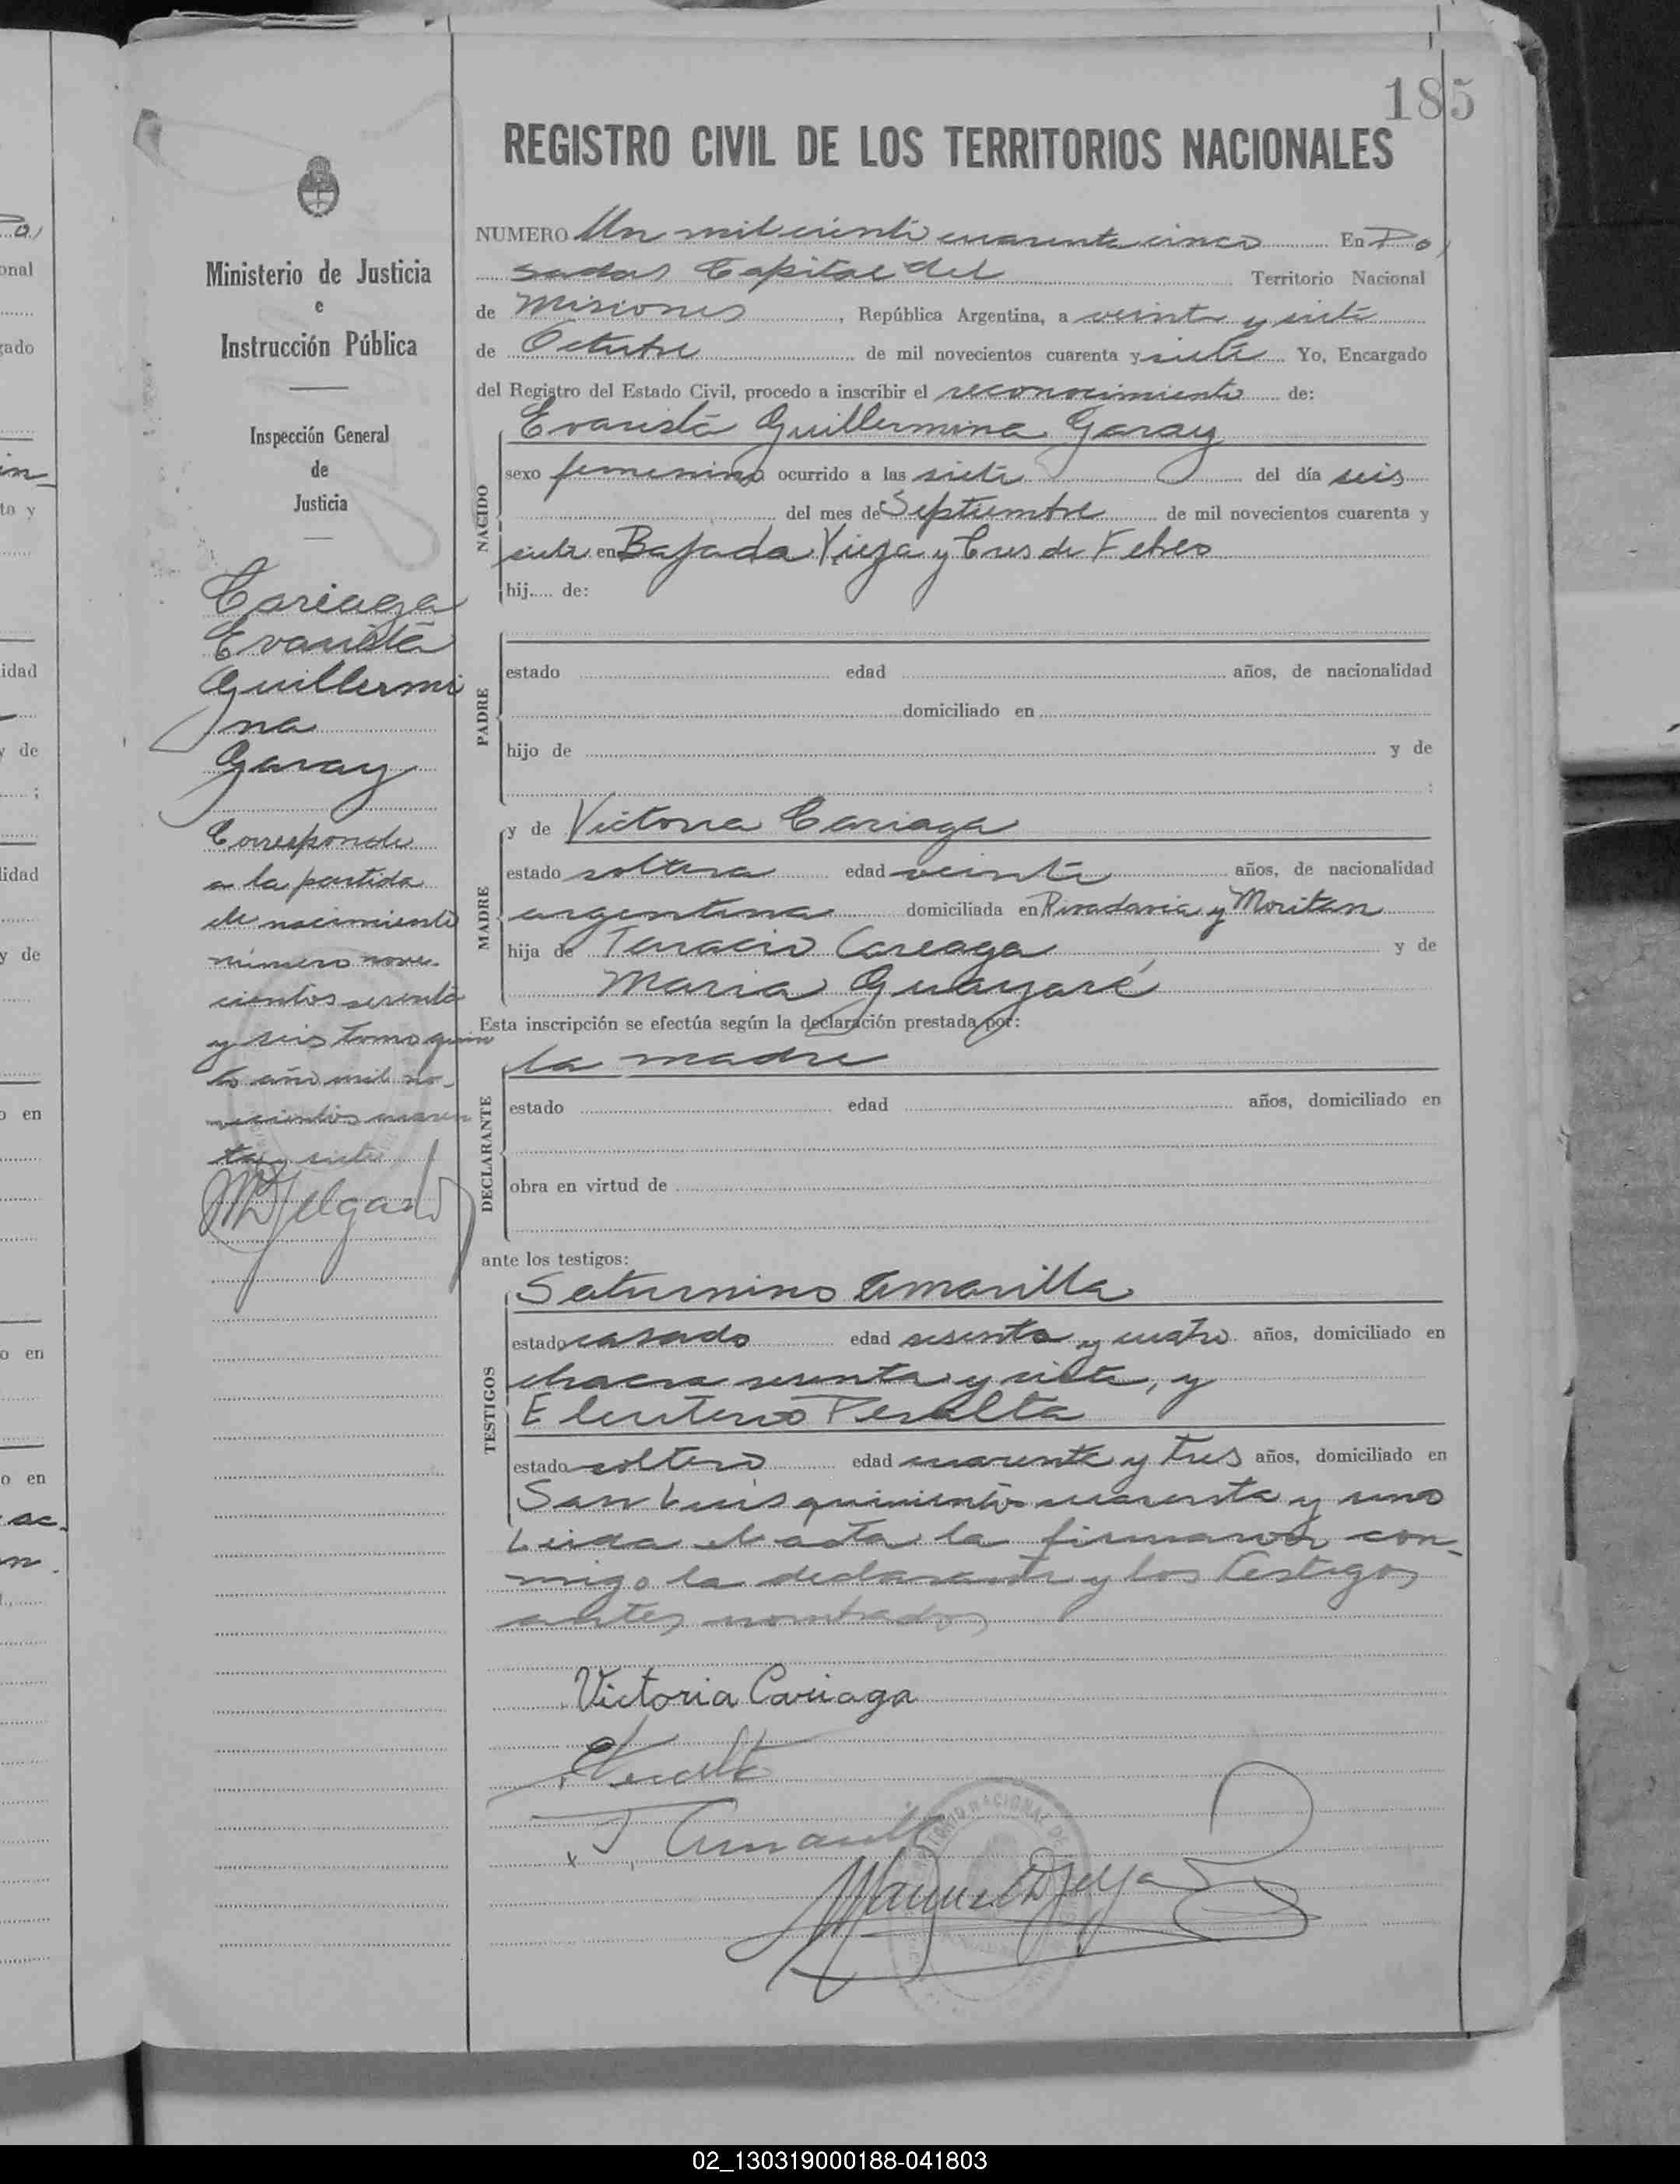 185
REGISTRO CIVIL DE LOS TERRITORIOS NACIONALES
Ministerio de Justicia
e
Instrucción Pública
Inspección General
de
Justicia
Cariaga
Evarista
Guillermi
na
Garay
Corresponde
a la partida
de nacimiento
número nove-
cientos sesenta
y seis tomo quin
to año mil no-
vecientos cuaren
ta y siete
MDelgado
NUMERO Un mil ciento cuarenta cinco En Po
sadas Capital del Territorio Nacional
de Misiones, República Argentina, a veinte y siete
de Octubre de mil novecientos cuarenta y siete Yo, Encargado
del Registro del Estado Civil, procedo a inscribir el reconocimiento de:
NACIDO
Evarista Guillermina Garay
sexo femenino ocurrido a las siete del día seis
del mes de Septiembre de mil novecientos cuarenta y
siete en Bajada Vieja y Tres de Febro
hij..... de:
PADRE
estado edad años, de nacionalidad
domiciliado en
hijo de y de
:
MADRE
y de Victoria Cariaga
estado soltera edad veinte años, de nacionalidad
argentina domiciliada en Rivadavia y Moritan
hija de Careaga y de
Maria Guayaré
Esta inscripción se efectúa según la declaración prestada por:
DECLARANTE
la madre
estado edad años, domiciliado en
obra en virtud de
ante los testigos:
TESTIGOS
Saturnino Amarilla
estado casado edad sesenta y cuatro años, domiciliado en
chacra sesenta y siete, y
Eleuterio Peralta
estado soltero edad cuarenta y tres años, domiciliado en
San Luis quinientos cuarenta y uno
Leida el acta la firmaron con-
migo la declarante y los testigos
antes nombrados
Victoria Cariaga
Manuel Delgado
02_130319000188-041803